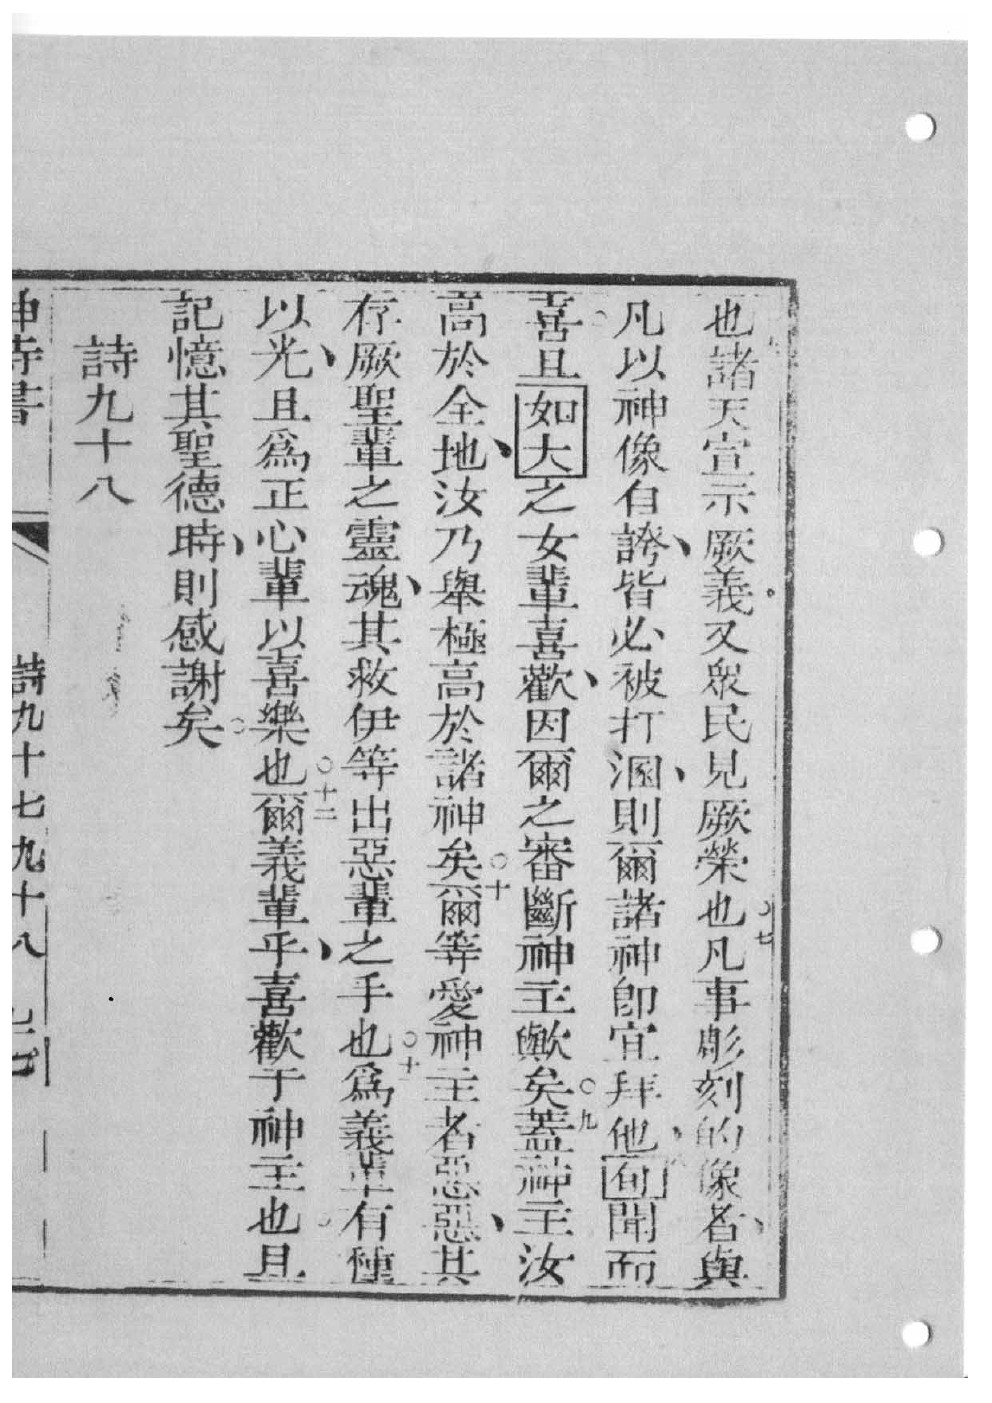 也諸天宣示厥義又衆民見厥榮也○七凡事彫刻的像者與
凡以神像自誇皆必被打溷則爾諸神卽宜拜他旬聞而
喜且如大之女輩喜歡因爾之審斷神主歟矣○九蓋神主汝
高於全地汝乃舉極高於諸神矣○十爾等愛神主者惡惡其
存厥聖輩之靈魂其救伊等出惡輩之手也○十一爲義輩有種
以光且爲正心輩以喜樂也○十二爾義輩乎喜歡于神主也且
記憶其聖德時則感謝矣
詩九十八
神詩書 詩九十七九十八